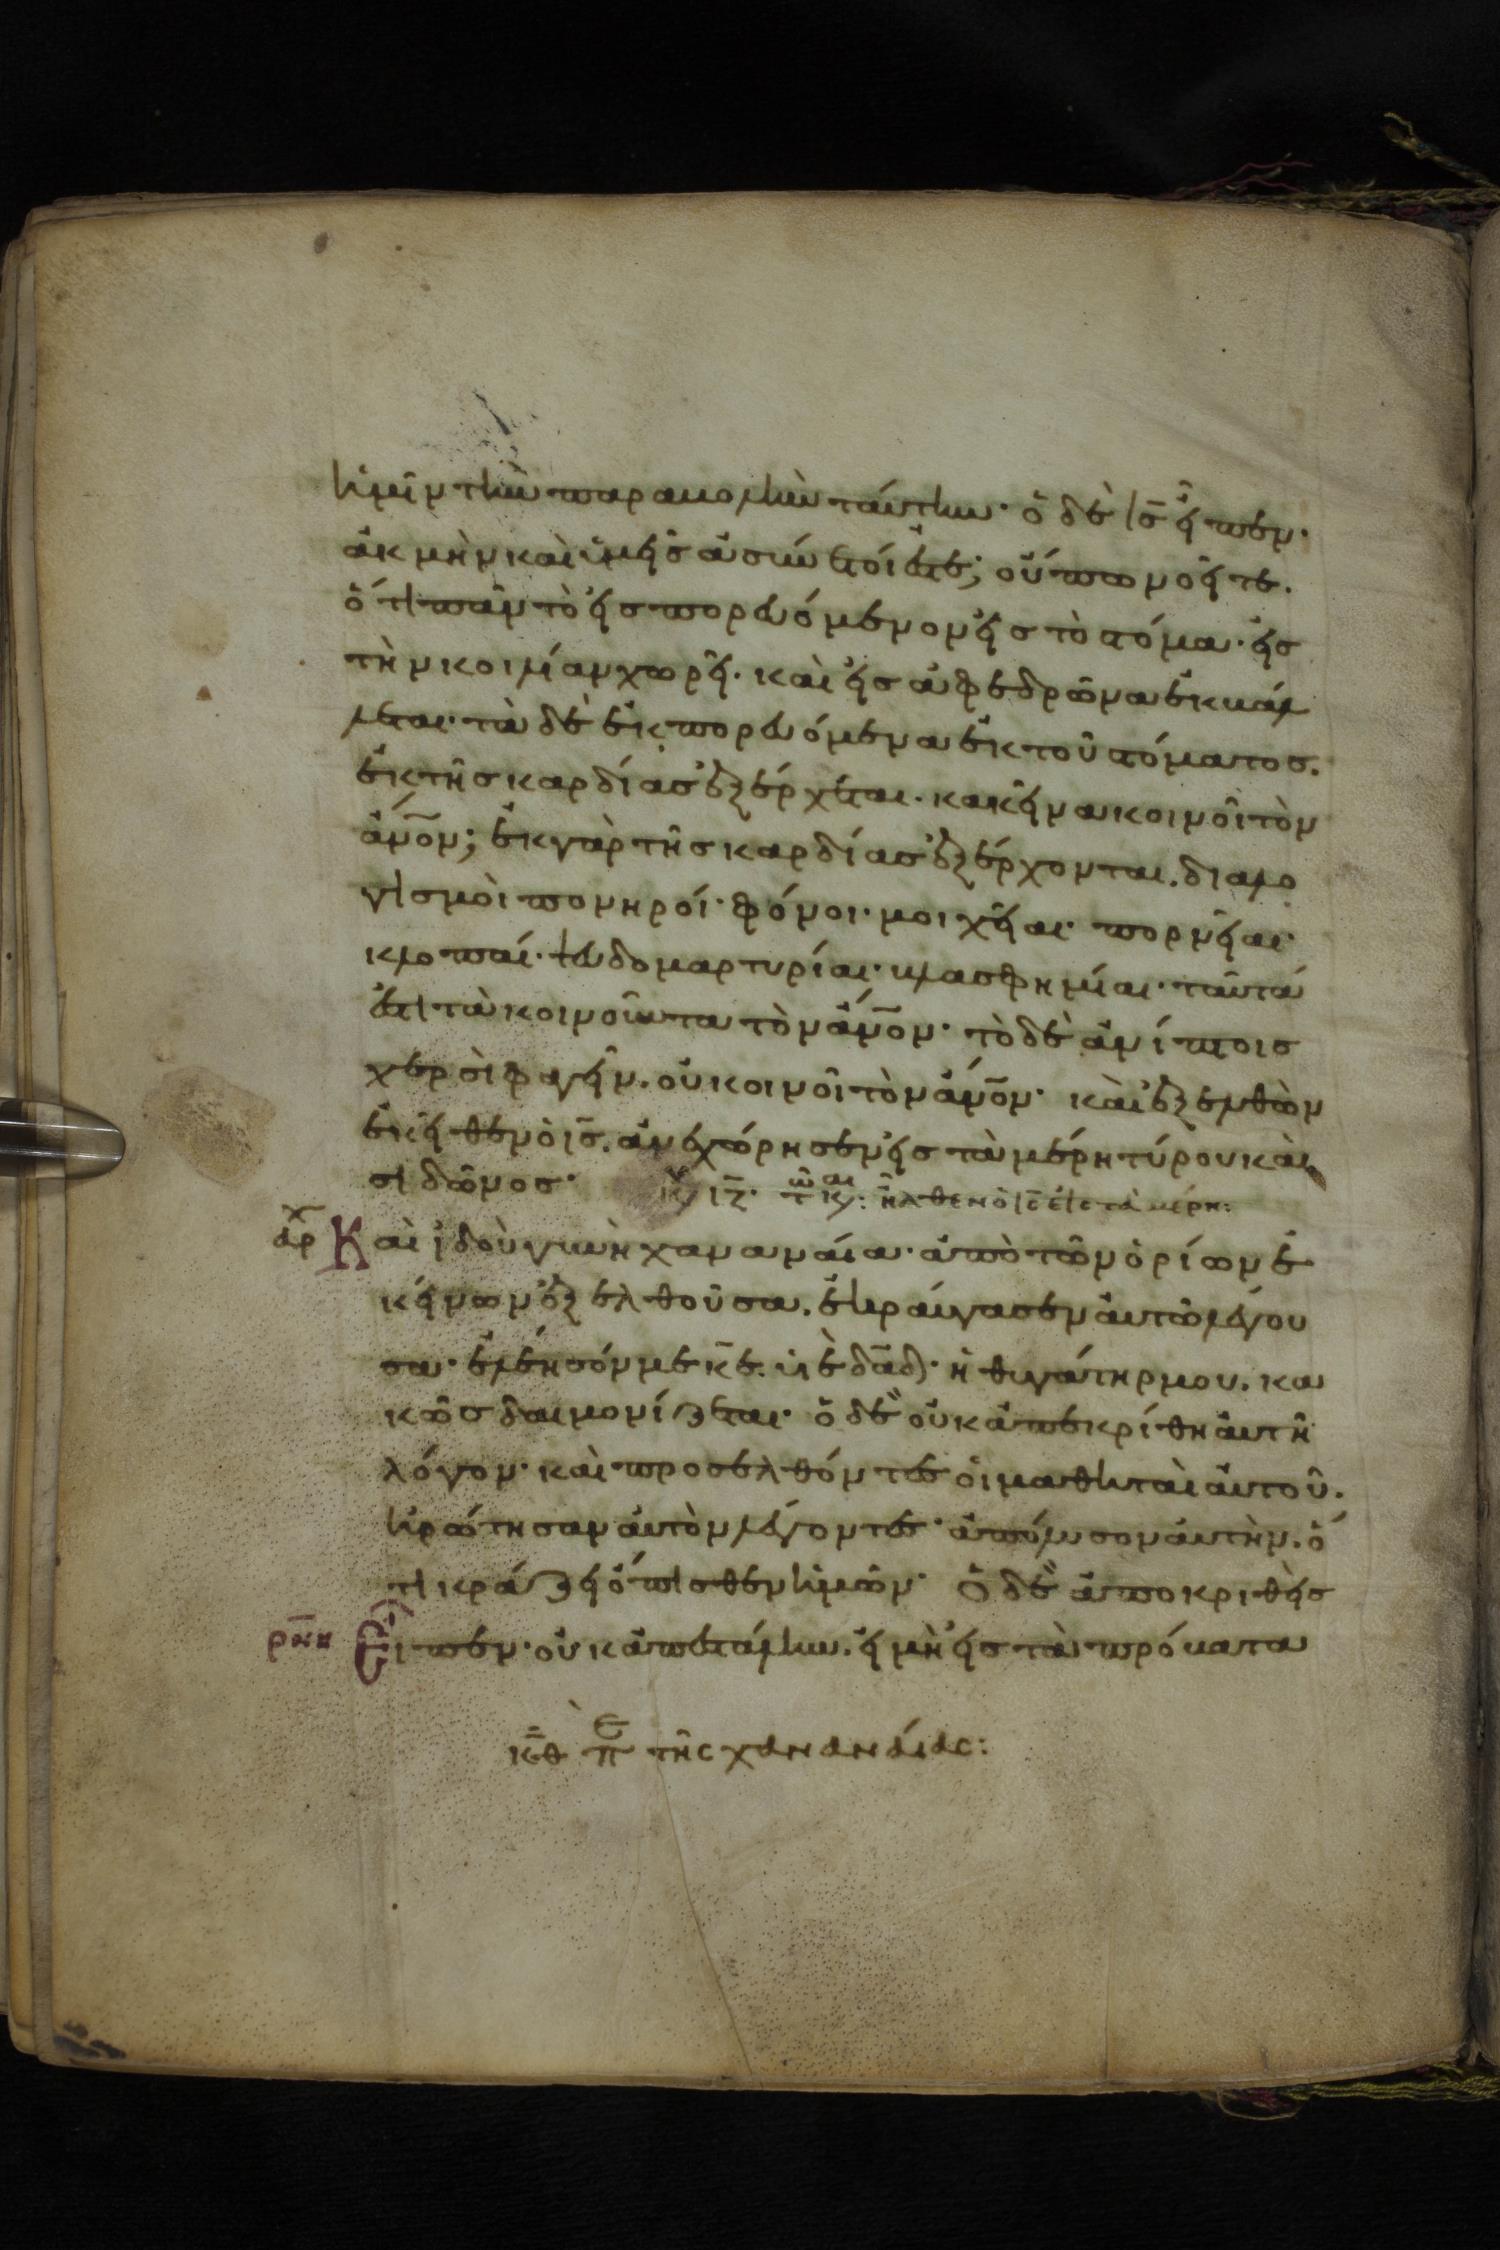 ἡμῖν τὴν παραβολὴν ταύτην· ὁ δὲ ις̅ εἶπεν·
ἀκμὴν καὶ ὑμεῖς ἀσύνετοί ἐστε; οὔπω νοεῖτε.
ὅτι πᾶν τὸ εἰσπορευόμενον εἰς τὸ στόμα· εἰς
τὴν κοιλίαν χωρεῖ· καὶ εἰς ἀφεδρῶνα ἐκβάλ
λεται· τὰ δὲ ἐκπορευόμενα ἐκ τοῦ στόματος.
ἐκ τῆς καρδίας ἐξέρχεται. κακεῖνα κοινοῖ τὸν
ἄν̅ον; ἐκ γὰρ τῆς καρδίας ἐξέρχονται. διαλο
γισμοὶ πονηροί· φόνοι· μοιχεῖαι· πορνεῖαι·
κλοπαί· ψευδομαρτυρίαι· βλασφημίαι· ταῦτά
ἐστι τὰ κοινοῦντα τὸν ἄν̅ον· τὸ δὲ ἀνίπτοις
χερσὶ φαγεῖν. οὐ κοινοῖ τὸν ἄν̅ον· καὶ ἐξελθὼν
ἐκεῖθεν ὁ ις̅. ἀνεχώρησεν εἰς τὰ μέρη τύρου καὶ
σιδῶνος· κυ ιζ̅· τῶ καιρῷ: ἦλθεν ὁ ις̅ εἰς τὰ μέρη:
αρχ Καὶ ἰδοὺ γυνὴ χαναναία· ἀπὸ τῶν ὁρίων ἐ
κείνων ἐξελθοῦσα. ἐκραύγασεν αὐτῶ λέγου
σα· ἐλέησόν με κ̅ε. υἱὲ δα̅δ· ἡ θυγάτηρ μου. κα
κῶς δαιμονίζεται· ὁ δὲ οὐκ ἀπεκρίθη αὐτῆ
λόγον· καὶ προσελθόντες οἱ μαθηταὶ αὐτοῦ.
ἠρώτησαν αὐτὸν λέγοντες· ἀπόλυσον αὐτὴν. ὅ
τι κράζει ὄπισθεν ἡμῶν· Ὁ δὲ ἀποκριθεὶς
ρνη Εἶπεν· οὐκ ἀπεστάλην. εἰ μὴ εἰς τὰ πρόβατα
κθ̅ πε τῆς χαναναίας: